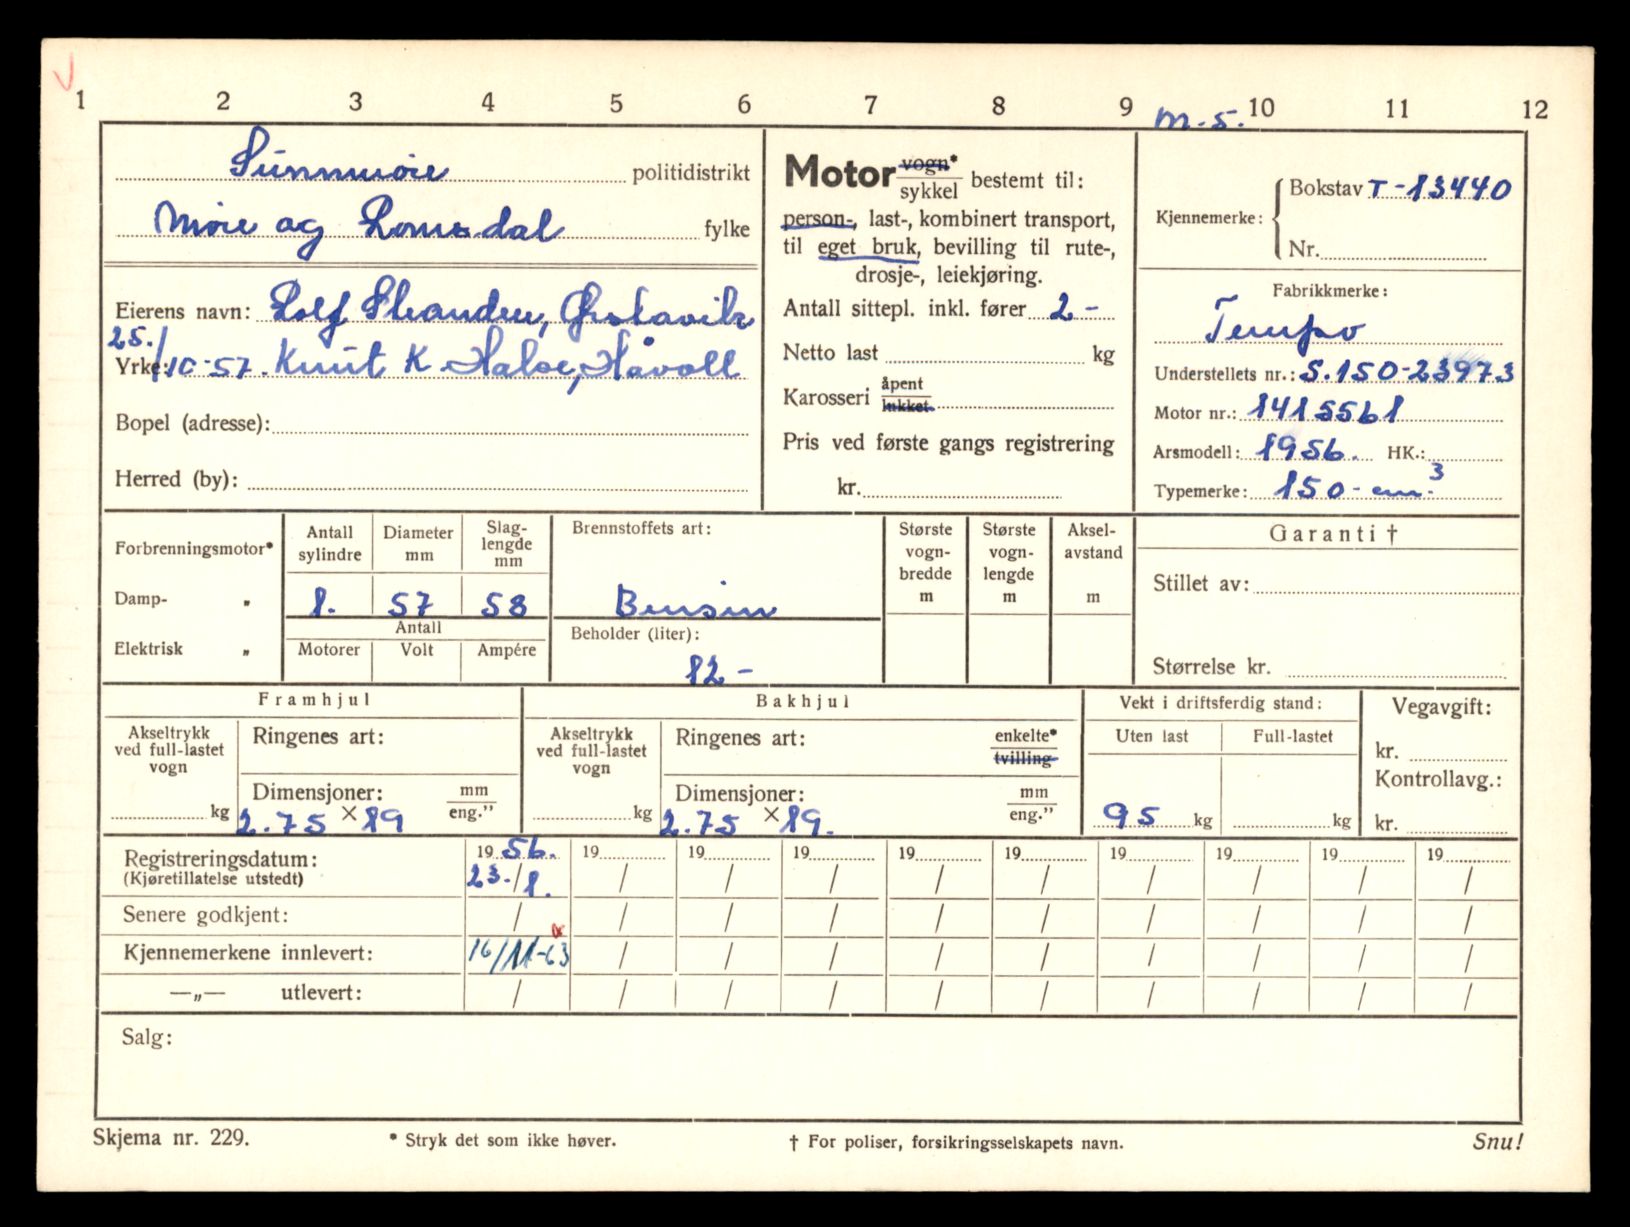 1 2 3 4 5 6 7 8 9 10 11 12
m.s.
Sunnmøre politidistrikt
Møre og Romsdal fylke
Eierens navn: Rolf Strandere, Ørstavik
25./10-57. Knut K. Halse, Håvoll
Yrke:
Bopel (adresse):
Herred (by):
Motor vogn* / sykkel bestemt til:
person-, last-, kombinert transport,
til eget bruk, bevilling til rute-,
drosje-, leiekjøring.
Antall sittepl. inkl. fører 2 -
Netto last kg
Karosseri åpent / lukket.
Pris ved første gangs registrering
kr.
Kjennemerke: Bokstav T-13440
Nr.
Fabrikkmerke:
Tempo
Understellets nr.: S.150-23973
Motor nr.: 1415561
Arsmodell: 1956. HK.:
Typemerke: 150-cm.3
Forbrenningsmotor*
Damp- „
Elektrisk „
Antall sylindre Diameter mm Slag-lengde mm
1. 57 58
Antall
Motorer Volt Ampére
Brennstoffets art:
Bensin
Beholder (liter):
12 -
Største vogn-bredde m
Største vogn-lengde m
Aksel-avstand m
Garanti †
Stillet av:
Størrelse kr.
Framhjul
Akseltrykk ved full-lastet vogn
kg
Ringenes art:
Dimensjoner: mm / eng.”
2.75 × 19
Bakhjul
Akseltrykk ved full-lastet vogn
kg
Ringenes art: enkelte* / tvilling
Dimensjoner: mm / eng.”
2.75 × 19.
Vekt i driftsferdig stand:
Uten last Full-lastet
95 kg kg
Vegavgift:
kr.
Kontrollavg.:
kr.
Registreringsdatum: 19 56. 19 19 19 19 19 19 19 19 19
(Kjøretillatelse utstedt) 23./1. / / / / / / / / /
Senere godkjent: / / / / / / / / / /
Kjennemerkene innlevert: 16/11-63 / / / / / / / / /
—„— utlevert: / / / / / / / / / /
Salg:
Skjema nr. 229. * Stryk det som ikke høver. † For poliser, forsikringsselskapets navn. Snu!